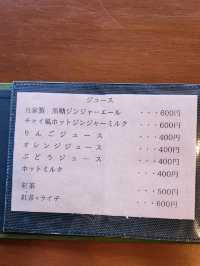 ジュース
自家製 黒糖ジンジャーエール ・・・600円
チャイ風ホットジンジャーミルク ・・・600円
りんごジュース ・・・400円
オレンジジュース ・・・400円
ぶどうジュース ・・・400円
ホットミルク ・・・400円
紅茶 ・・・500円
紅茶・ライチ ・・・600円